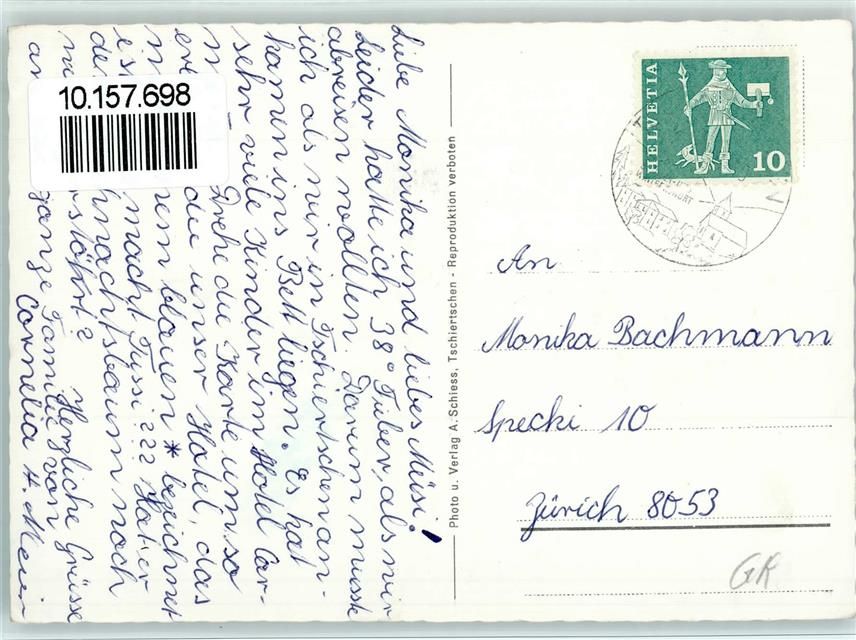 Liebe Monika und liebes Müsi!
Leider hatte ich 38° Fieber, als wir
abreisen wollten. Darum musste
ich als wir in Tschiertschen an-
kamen ins Bett liegen. Es hat
sehr viele Kinder im Hotel Car-
Drehe die Karte um so
die unser Hotel, das
em blauen * bezeichnet
macht Fussi ??? Hat er
hnachtsbaum noch
rstört? Herzliche Grüsse
ganze Familie von
Cornelia H. Meier
10.157.698
Photo u. Verlag A. Schiess, Tschiertschen - Reproduktion verboten
HELVETIA
10
An
Monika Bachmann
Specki 10
Zürich 8053
GK